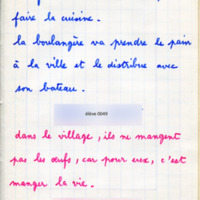 faire la cuisine.
la boulangère va prendre le pain
à la ville et le distribue avec
son bateau.
élève 0049
dans le village, ils ne mangent
pas les œufs, car pour eux, c'est
manger la vie.